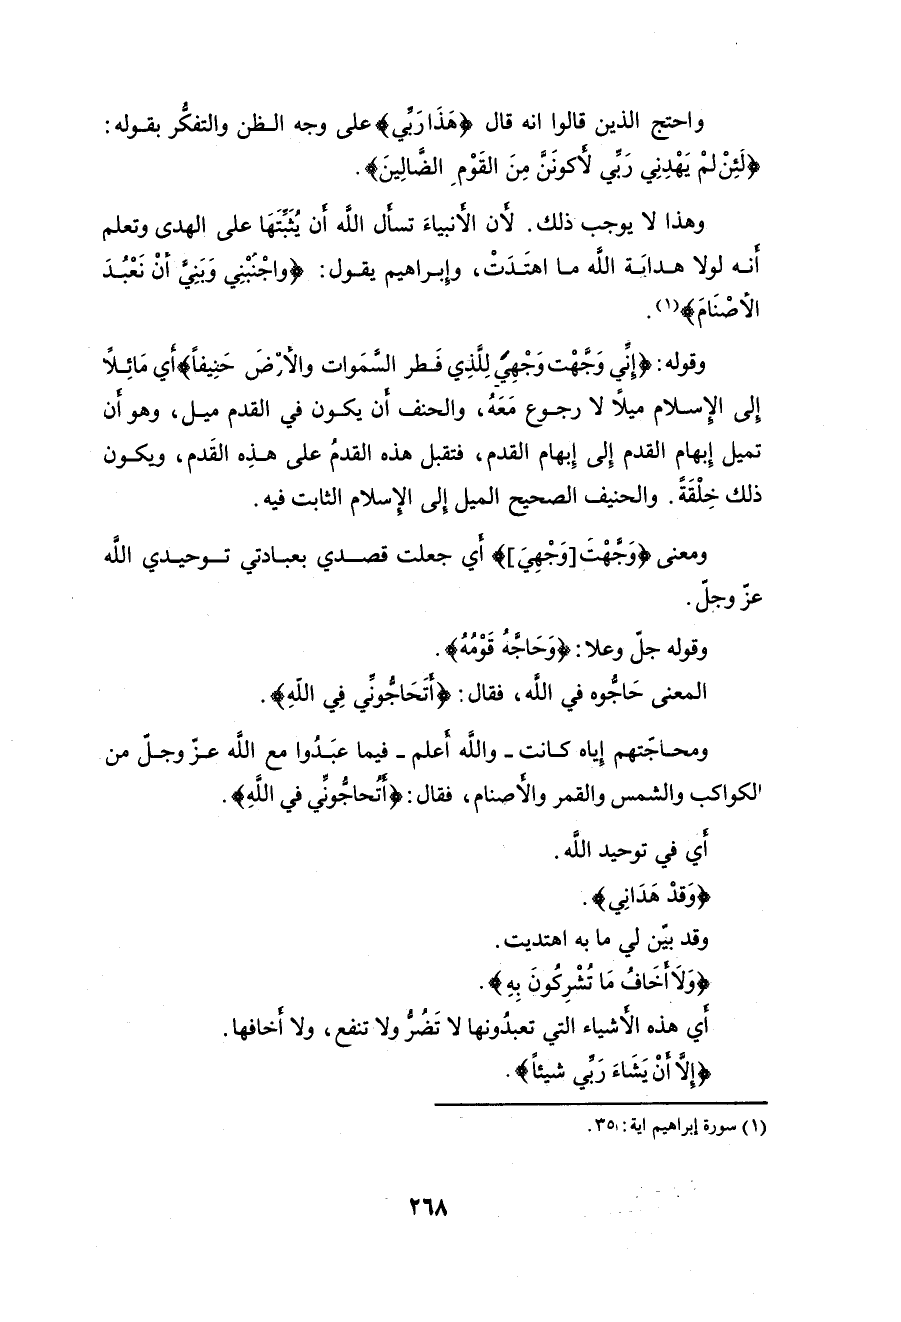 واحتج الذين قالوا انه قال ﴿هَذَا رَبِّي﴾ على وجه الـظن والتفكُّر بقـوله:
﴿لَئِنْ لمْ يَهْدِنِي رَبِّي لأَكونَنَّ مِنَ القَوْمِ الضَّالِينَ﴾.
وهذا لا يوجب ذلك. لأن الأنبياءَ تسأل اللَّه أن يُثَبِّتَهَا على الهدى وتعلم
أنـه لولا هـدايَـة اللَّه مـا اهتَـدَتْ، وإبـراهيم يقـول: ﴿واجْنُبْنِي وَبَنِيَّ أنْ نَعْبُـدَ
الأصْنَامَ﴾(١).
وقوله: ﴿إنِّي وَجَّهْت وَجْهِيَ لِلَّذِي فَـطر السَّمَوات والأرْضَ حَنِيفاً﴾ أي مَائِـلاً
إلى الإسـلام ميلاً لا رجـوع مَعَهُ، والحنف أن يكـون في القدم ميـل، وهو أن
تميل إبهام القدم إلى إبهام القدم، فتقبل هذه القدمُ على هـذِه القَدم، ويكـون
ذلك خِلْقَةً. والحنيف الصحيح الميل إلى الإسلام الثابت فيه.
ومعنى ﴿وَجَّهْتَ [وَجْهِيَ]﴾ أي جعلت قصـدي بعبـادتي تـوحيـدي اللَّه
عزّ وجلّ.
وقوله جلّ وعلا: ﴿وَحَاجَّهُ قَوْمُهُ﴾.
المعنى حَاجُّوه في اللَّه، فقال: ﴿أَتَحَاجُّونِّي فِي اللّهِ﴾.
ومحـاجّتهم إياه كـانت ـ واللَّه أعلم ـ فيما عبَـدُوا مع اللَّه عـزّ وجـلّ من
الكواكب والشمس والقمر والأصنام، فقال: ﴿أَتُحاجُّونِّي في اللَّهِ﴾.
أي في توحيد اللَّه.
﴿وَقدْ هَدَانِي﴾.
وقد بيّن لي ما به اهتديت.
﴿وَلَا أَخَافُ مَا تُشْرِكُونَ بِهِ﴾.
أي هذه الأشياء التي تعبدُونها لا تَضُرُّ ولا تنفع، ولا أخافها.
﴿إلَّا أَنْ يَشَاءَ رَبِّي شيئاً﴾.
(١) سورة إبراهيم اية: ٣٥.
٢٦٨